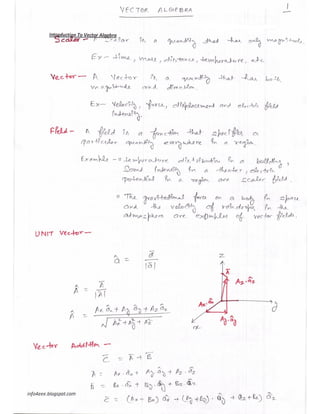 VECTOR ALGEBRA 1
Introduction To Vector Algebra
Scalar - A scalar is a quantity that has only magnitude.
Ex - time, mass, distance, temperature, etc.
Vector - A Vector is a quantity that has both
magnitude and direction.
Ex - Velocity, force, displacement and electric field
intensity.
Field - A field is a function that specifies a
particular quantity everywhere in a region.
Example - = temperature distribution in a building,
Sound intensity in a theater, electric
potential in a region are scalar field.
= The gravitational force on a body in space
and the velocity of raindrops in the
atmosphere are examples of vector fields.
UNIT Vector -
â = a / |a|
Â = A / |A|
Â = Ax âx + Ay ây + Az âz / √Ax² + Ay² + Az²
z
A
Az âz
Ax âx
y
Ay ây
x
Vector Addition -
C = A + B
A = Ax âx + Ay ây + Az âz
B = Bx âx + By ây + Bz âz
C = (Ax + Bx) âx + (Ay + By) ây + (Az + Bz) âz
info4eee.blogspot.com